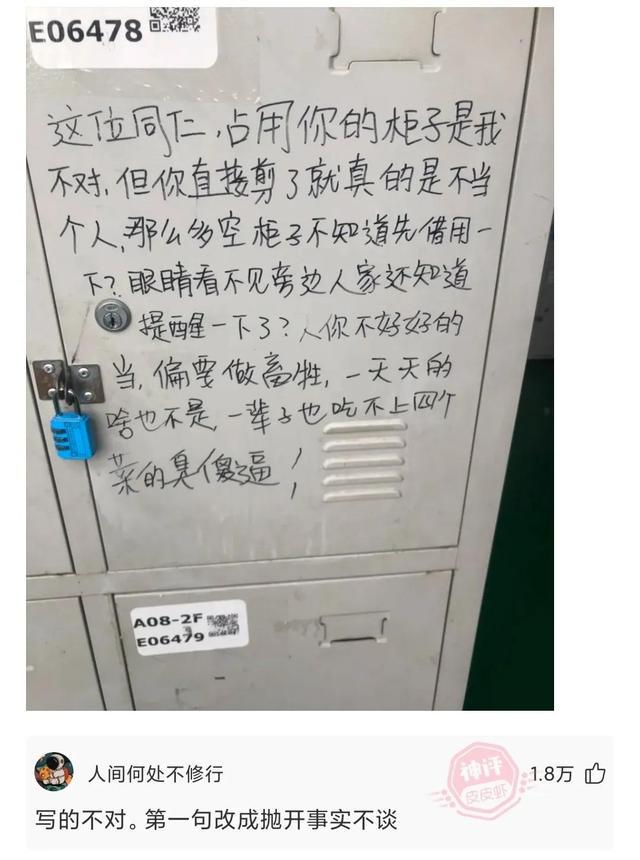 E06478
这位同仁,占用你的柜子是我
不对,但你直接剪了就真的是不当
个人,那么多空柜子不知道先借用一
下?眼睛看不见旁边人家还知道
提醒一下了?人你不好好的
当,偏要做畜牲,一天天的
啥也不是,一辈子也吃不上四个
菜的臭傻逼!
A08-2F
E06479
人间何处不修行
神评
皮皮虾
1.8万
写的不对。第一句改成抛开事实不谈